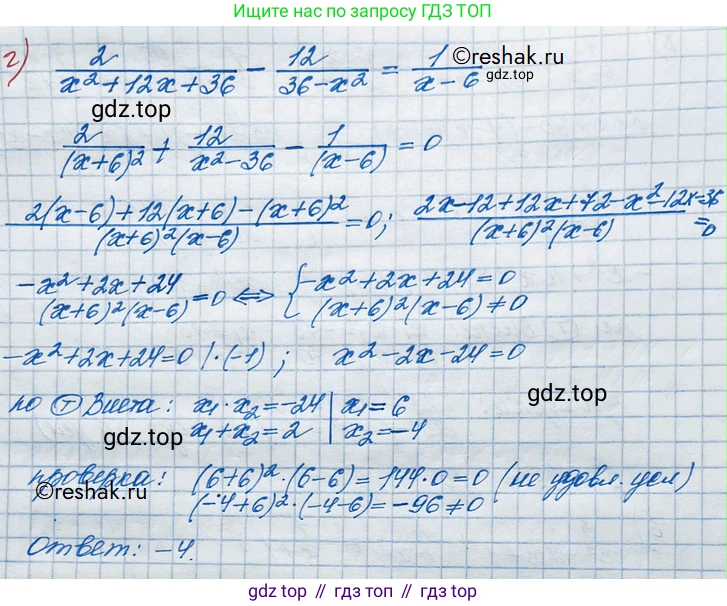 Ищите нас по запросу ГДЗ ТОП
г) 2/(x²+12x+36) − 12/(36−x²) = 1/(x−6)
©reshak.ru
gdz.top
2/(x+6)² + 12/(x²−36) − 1/(x−6) = 0
(2(x−6)+12(x+6)−(x+6)²)/((x+6)²(x−6)) = 0; (2x−12+12x+72−x²−12x−36)/((x+6)²(x−6)) = 0
(−x²+2x+24)/((x+6)²(x−6)) = 0 ⟺ { −x²+2x+24=0
(x+6)²(x−6)≠0
−x²+2x+24=0 |·(−1); x²−2x−24=0
по Ⓣ Виета: x₁·x₂=−24 | x₁=6
x₁+x₂=2 | x₂=−4
gdz.top
gdz.top
проверка: (6+6)²·(6−6)=144·0=0 (не удовл. усл)
©reshak.ru
(−4+6)²·(−4−6)=−96≠0
Ответ: −4.
gdz.top // гдз топ // gdz.top // гдз топ